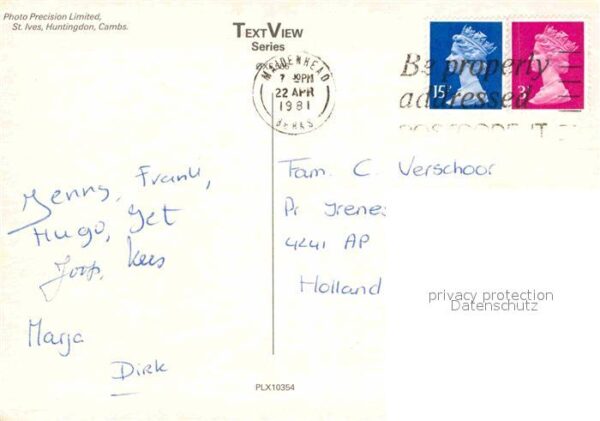 Photo Precision Limited,
St. Ives, Huntingdon, Cambs.
TEXTVIEW
Series
MAIDENHEAD
22 APR
1981
BERKS
Be properly
addressed
POSTCODE IT
15P
3P
Jenny, Frank,
Hugo, Jet
Joop, Kees
Marja
Dirk
Fam. C. Verschoor
Pr Irene
4241 AP
Holland
privacy protection
Datenschutz
PLX10354